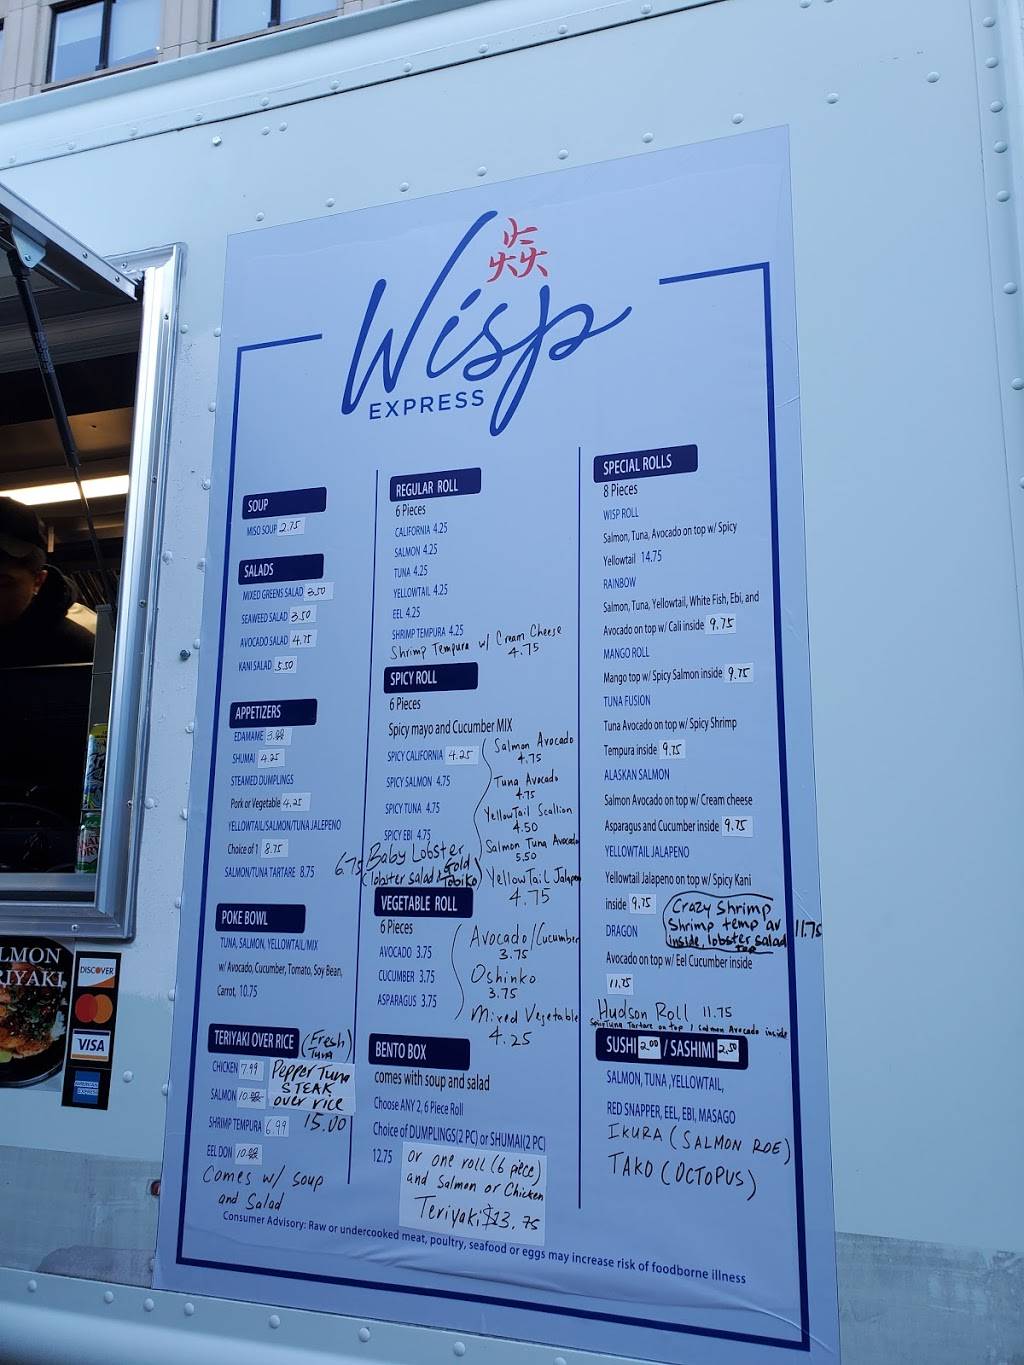 Wisp
EXPRESS
SOUP
MISO SOUP 2.75
SALADS
MIXED GREENS SALAD 3.50
SEAWEED SALAD 3.50
AVOCADO SALAD 4.75
KANI SALAD 5.50
APPETIZERS
EDAMAME
SHUMAI 4.25
STEAMED DUMPLINGS
Pork or Vegetable 4.25
YELLOWTAIL/SALMON/TUNA JALEPENO
Choice of 1 8.75
SALMON/TUNA TARTARE 8.75
POKE BOWL
TUNA, SALMON, YELLOWTAIL/MIX
w/ Avocado, Cucumber, Tomato, Soy Bean,
Carrot, 10.75
TERIYAKI OVER RICE
CHICKEN 7.99
SALMON
SHRIMP TEMPURA 6.99
EEL DON
(Fresh
Tuna)
Pepper Tuna
STEAK
over rice
15.00
Comes w/ soup
and Salad
REGULAR ROLL
6 Pieces
CALIFORNIA 4.25
SALMON 4.25
TUNA 4.25
YELLOWTAIL 4.25
EEL 4.25
SHRIMP TEMPURA 4.25
Shrimp Tempura w/ Cream Cheese
4.75
SPICY ROLL
6 Pieces
Spicy mayo and Cucumber MIX
SPICY CALIFORNIA 4.25
SPICY SALMON 4.75
SPICY TUNA 4.75
SPICY EBI 4.75
6.75 Baby Lobster
(lobster salad & Gold
Tobiko)
Salmon Avocado
4.75
Tuna Avocado
4.75
YellowTail Scallion
4.50
Salmon Tuna Avocado
5.50
YellowTail Jalapen
4.75
VEGETABLE ROLL
6 Pieces
AVOCADO 3.75
CUCUMBER 3.75
ASPARAGUS 3.75
Avocado/Cucumber
3.75
Oshinko
3.75
Mixed Vegetable
4.25
BENTO BOX
comes with soup and salad
Choose ANY 2, 6 Piece Roll
Choice of DUMPLINGS(2 PC) or SHUMAI(2 PC)
12.75
or one roll (6 piece)
and Salmon or Chicken
Teriyaki $13.75
SPECIAL ROLLS
8 Pieces
WISP ROLL
Salmon, Tuna, Avocado on top w/ Spicy
Yellowtail 14.75
RAINBOW
Salmon, Tuna, Yellowtail, White Fish, Ebi, and
Avocado on top w/ Cali inside 9.75
MANGO ROLL
Mango top w/ Spicy Salmon inside 9.75
TUNA FUSION
Tuna Avocado on top w/ Spicy Shrimp
Tempura inside 9.75
ALASKAN SALMON
Salmon Avocado on top w/ Cream cheese
Asparagus and Cucumber inside 9.75
YELLOWTAIL JALAPENO
Yellowtail Jalapeno on top w/ Spicy Kani
inside 9.75
DRAGON
Avocado on top w/ Eel Cucumber inside
11.75
Crazy Shrimp
Shrimp temp av
inside, lobster salad
top
11.75
Hudson Roll 11.75
Spicy Tuna Tartare on top / Salmon Avocado inside
SUSHI 2.00 / SASHIMI 2.50
SALMON, TUNA, YELLOWTAIL,
RED SNAPPER, EEL, EBI, MASAGO
IKURA (SALMON ROE)
TAKO (OCTOPUS)
Consumer Advisory: Raw or undercooked meat, poultry, seafood or eggs may increase risk of foodborne illness
LMON
RIYAKI
DISCOVER
VISA
AMERICAN EXPRESS